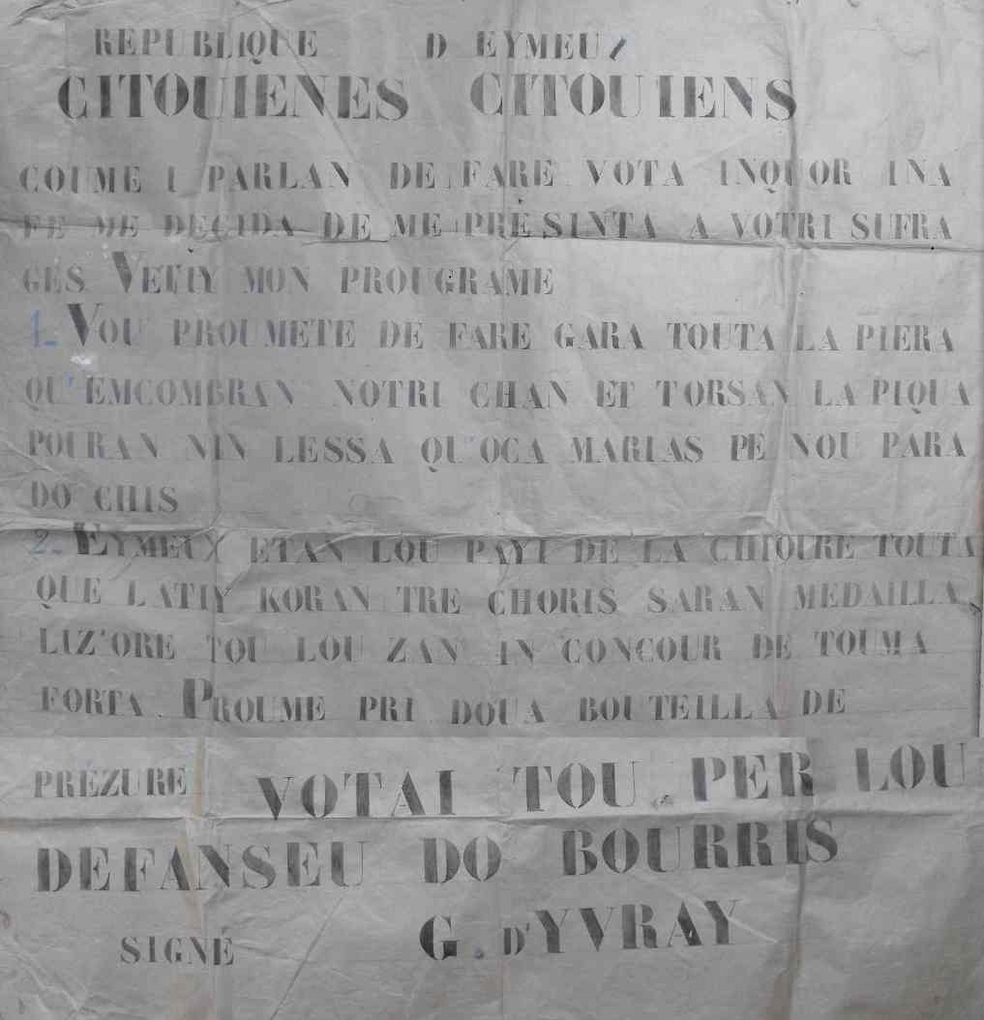 REPUBLIQUE D EYMEUX
CITOUIENES CITOUIENS
COUME I PARLAN DE FARE VOTA INQUOR INA
FE ME DECIDA DE ME PRESINTA A VOTRI SUFRA
GES VETIY MON PROUGRAME
1. VOU PROUMETE DE FARE GARA TOUTA LA PIERA
QU'EMCOMBRAN NOTRI CHAN ET TORSAN LA PIQUA
POURAN NIN LESSA QU'OCA MARIAS PE NOU PARA
DO CHIS
2. EYMEUX ETAN LOU PAYI DE LA CHIOURE TOUTA
QUE LATIY KORAN TRE CHORIS SARAN MEDAILLA
LIZ'ORE TOU LOU ZAN IN CONCOUR DE TOUMA
FORTA. PROUME PRI DOUA BOUTEILLA DE
PRÉZURE VOTAI TOU PER LOU
DEFANSEU DO BOURRIS
SIGNÉ G. D'YVRAY